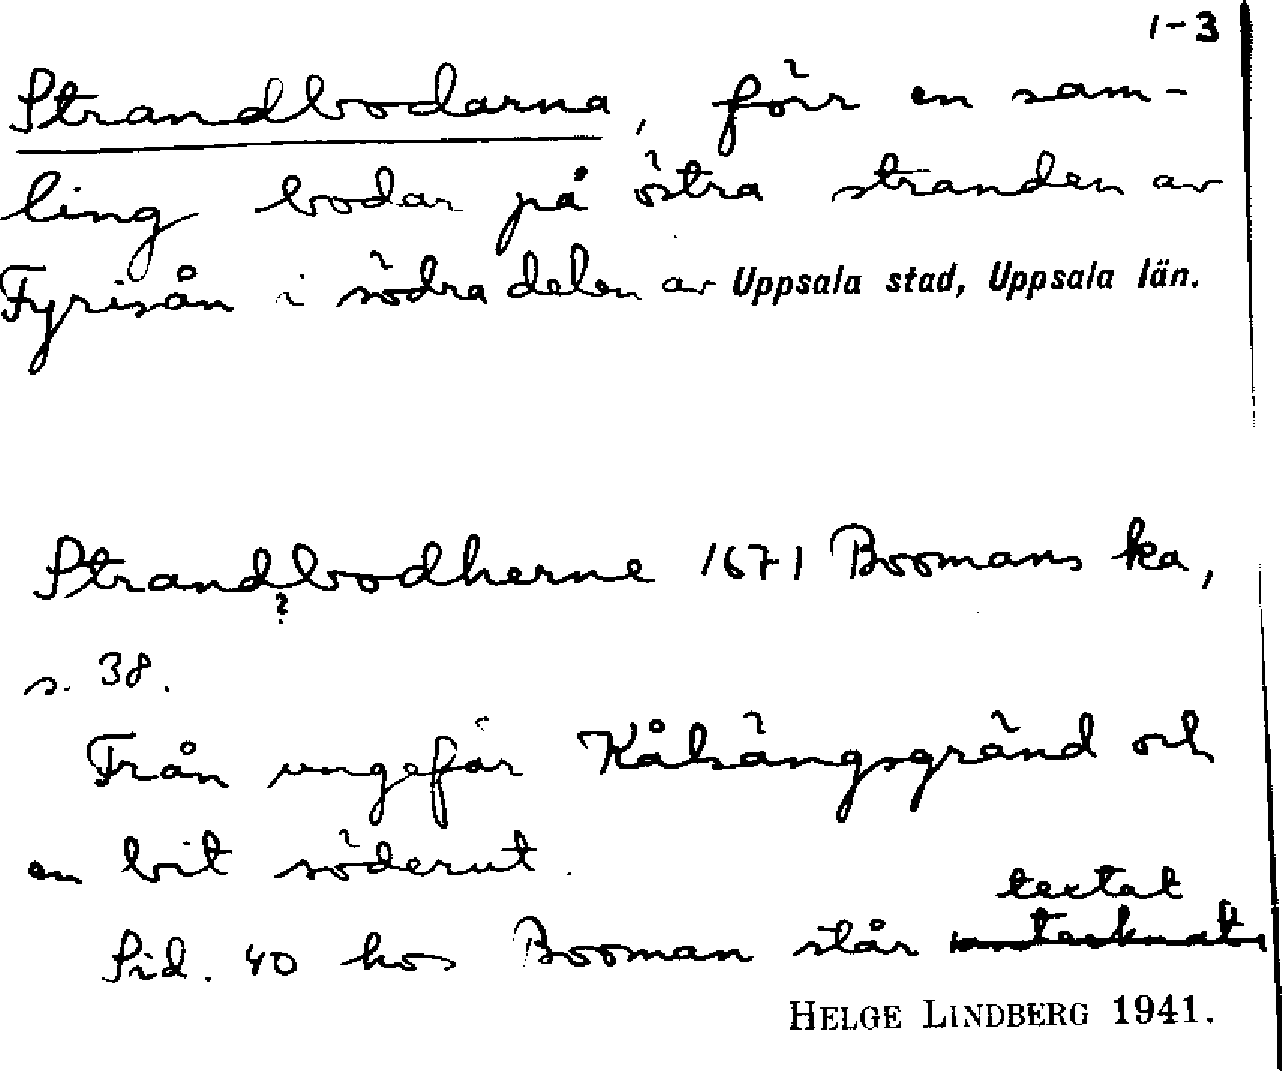 1-3
Strandbodarna, förr en sam-
ling bodar på östra stranden av
Fyrisån i södra delen av Uppsala stad, Uppsala län.
Strandbodherne 1671 Boomans ka,
?
s. 38.
Från ungefär Kålsängsgränd och
en bit söderut.
textat
Sid. 40 hos Booman står antecknat
HELGE LINDBERG 1941.